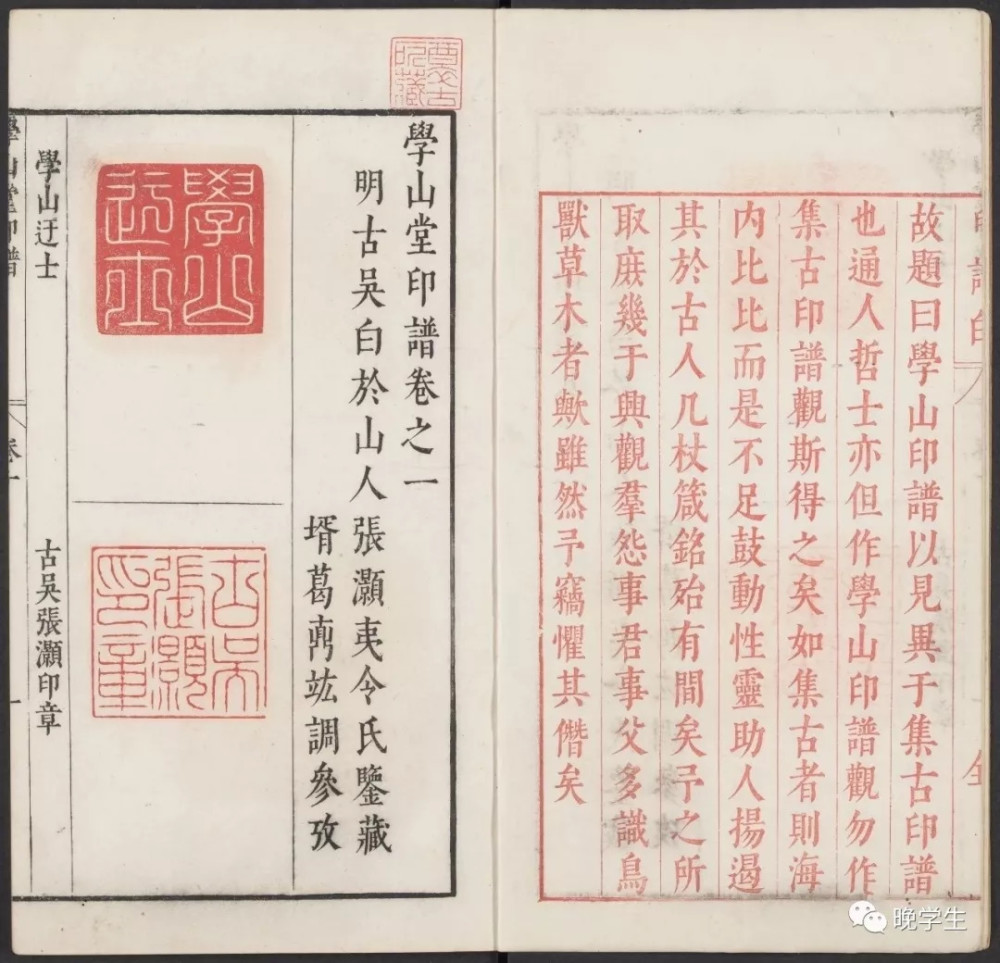 故題曰學山印譜以見異于集古印譜
也通人哲士亦但作學山印譜觀勿作
集古印譜觀斯得之矣如集古者則海
内比比而是不足鼓動性靈助人揚遏
其於古人几杖箴銘殆有間矣予之所
取庶幾于興觀羣怨事君事父多識鳥
獸草木者歟雖然予竊懼其僭矣
學山堂印譜卷之一
明古吳白於山人張灝夷令氏鑒藏
壻葛鼐竑調參攷
學山迂士
古吳張灝印章
學山迂士
古吳張灝印章
學山堂印譜
卷一
一
晚学生